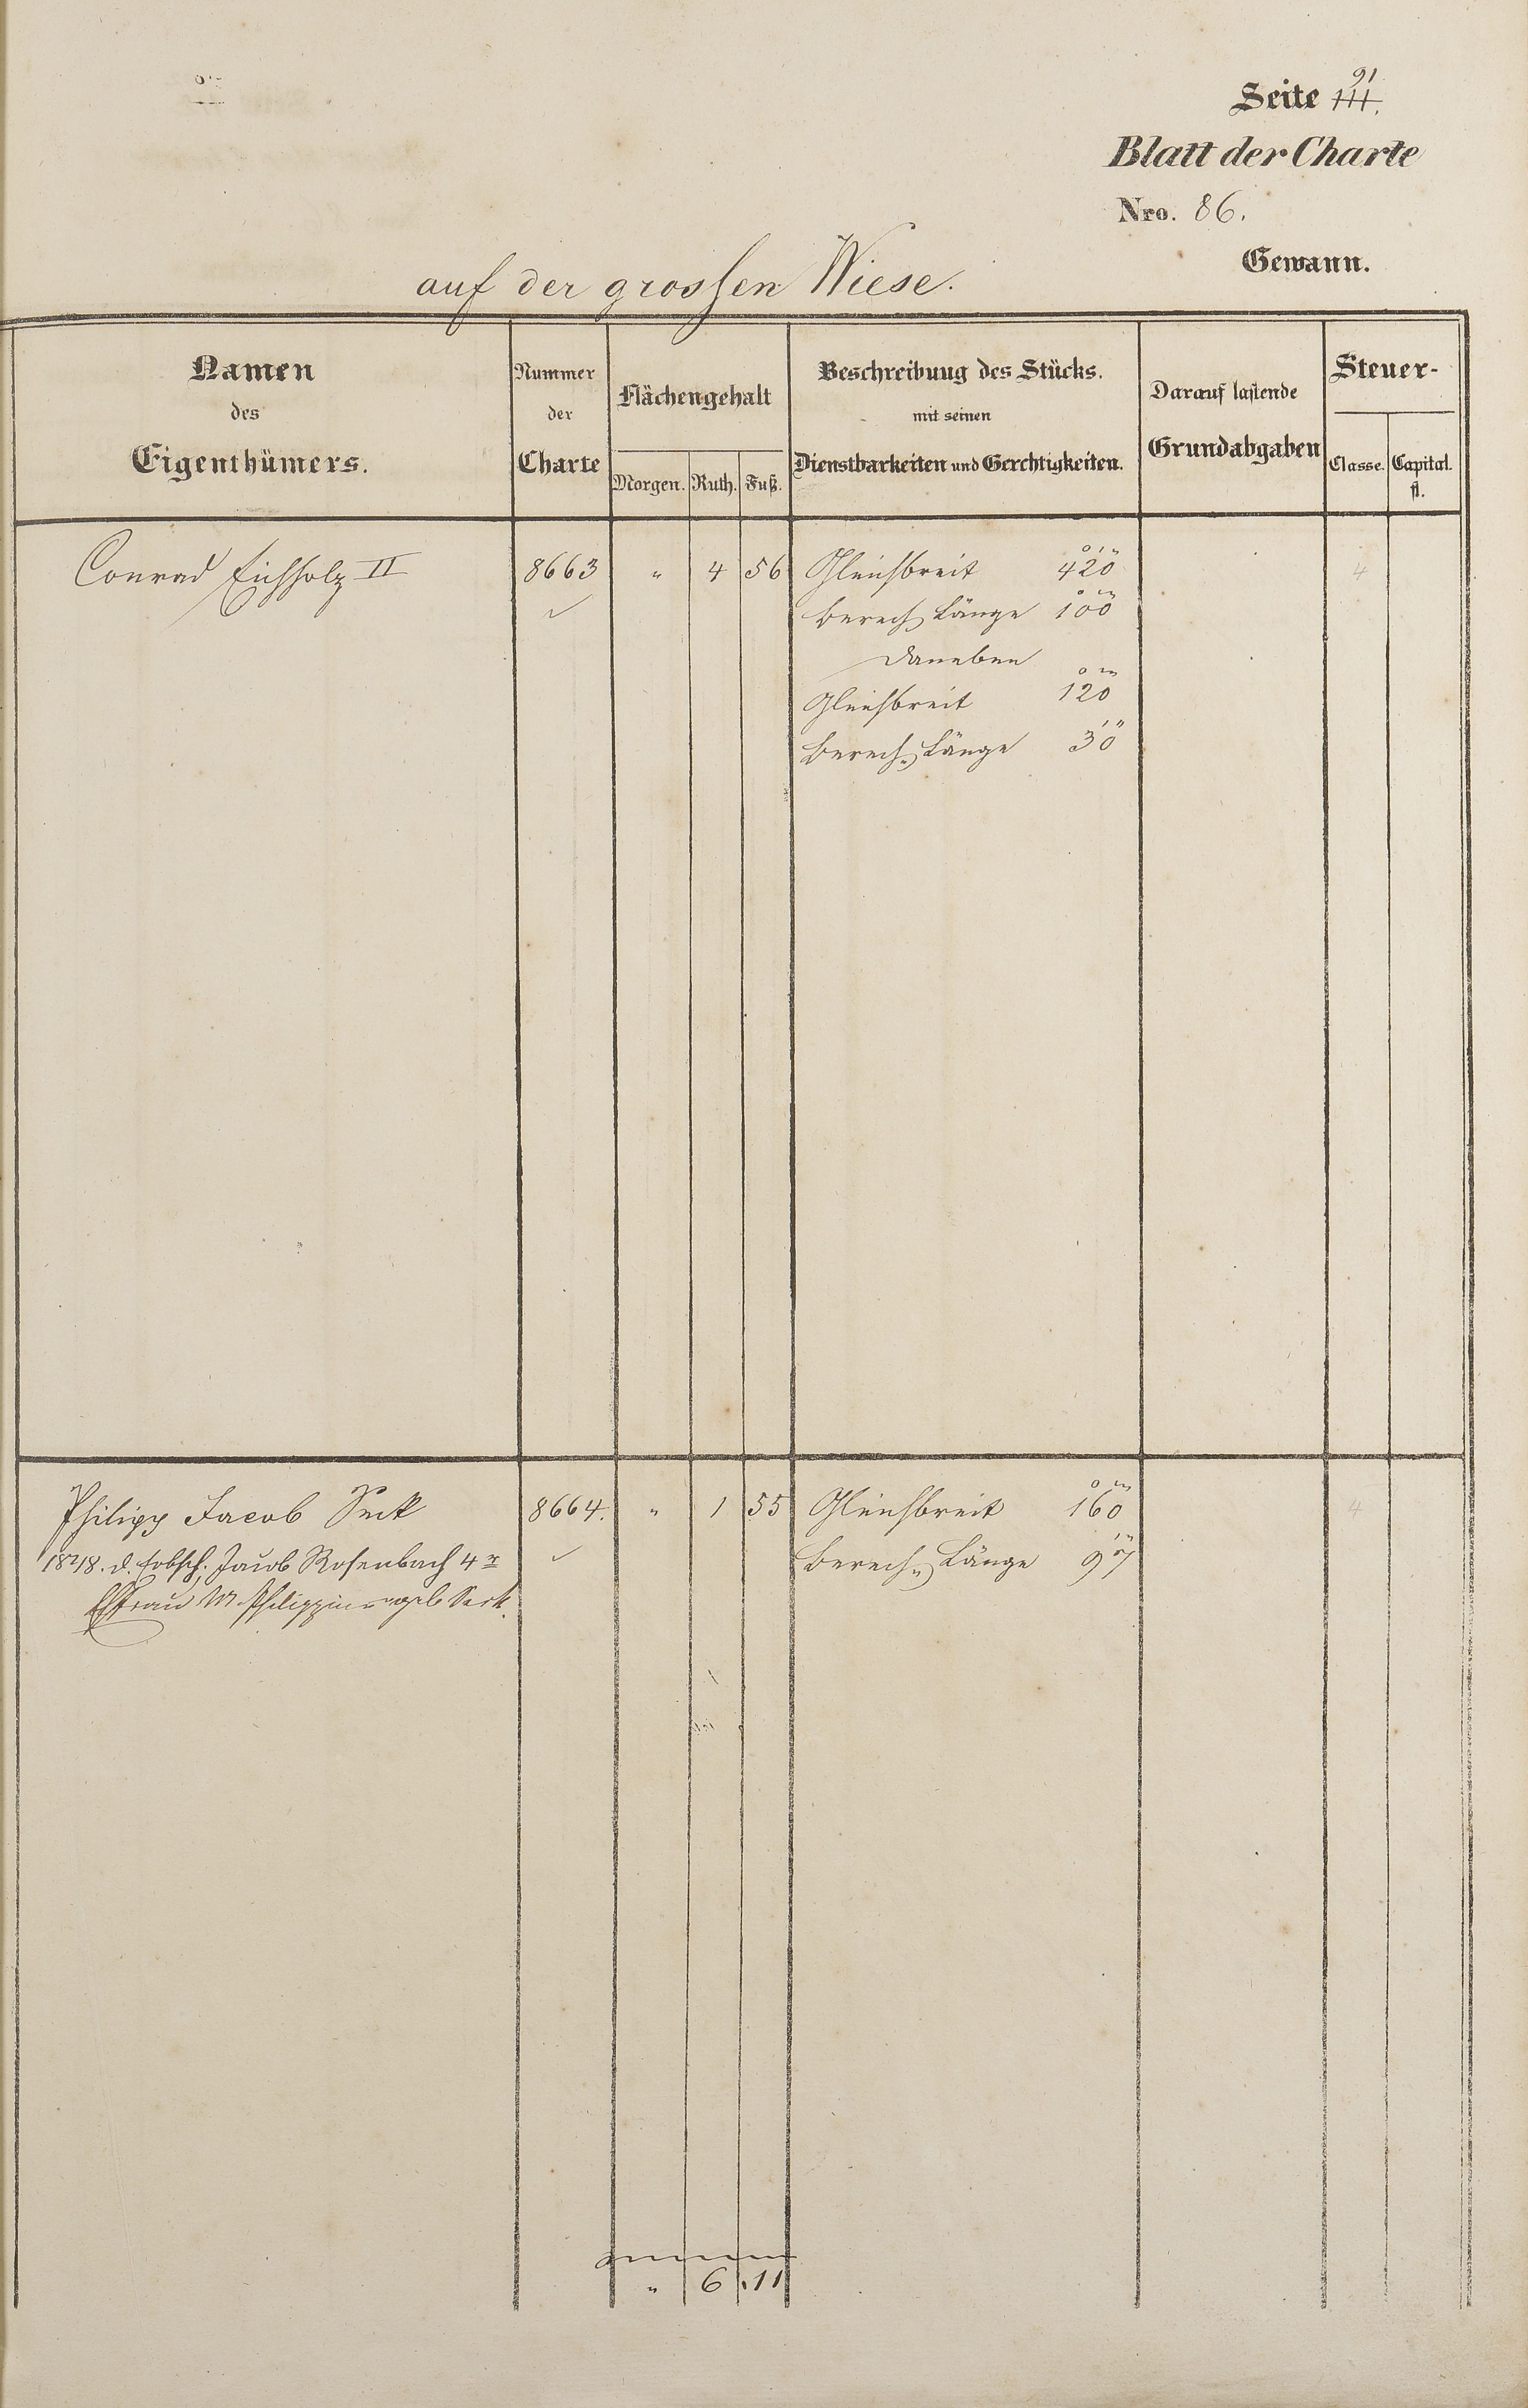 Seite 91
111.
Blatt der Charte
Nro. 86.
Gewann.
auf der grossen Wiese.
Namen
des
Eigenthümers.
Nummer
der
Charte
Flächengehalt
Morgen. Ruth. Fuß.
Beschreibung des Stücks.
mit seinen
Dienstbarkeiten und Gerechtigkeiten.
Darauf lastende
Grundabgaben
Steuer-
Classe. Capital.
fl.
Conrad Eichholz II 8663 " 4 56 Gleichbreit 420 4
Berech Länge 100
Daneben
Gleichbreit 120
Berech. Länge 30
Philipp Jacob Seck 8664. " 1 55 Gleichbreit 160 4
d. Erbsch. Jacob Rosenbach 4r Berech. Länge 97
Ehfrau M. Philippine geb Seck.
" 6 11